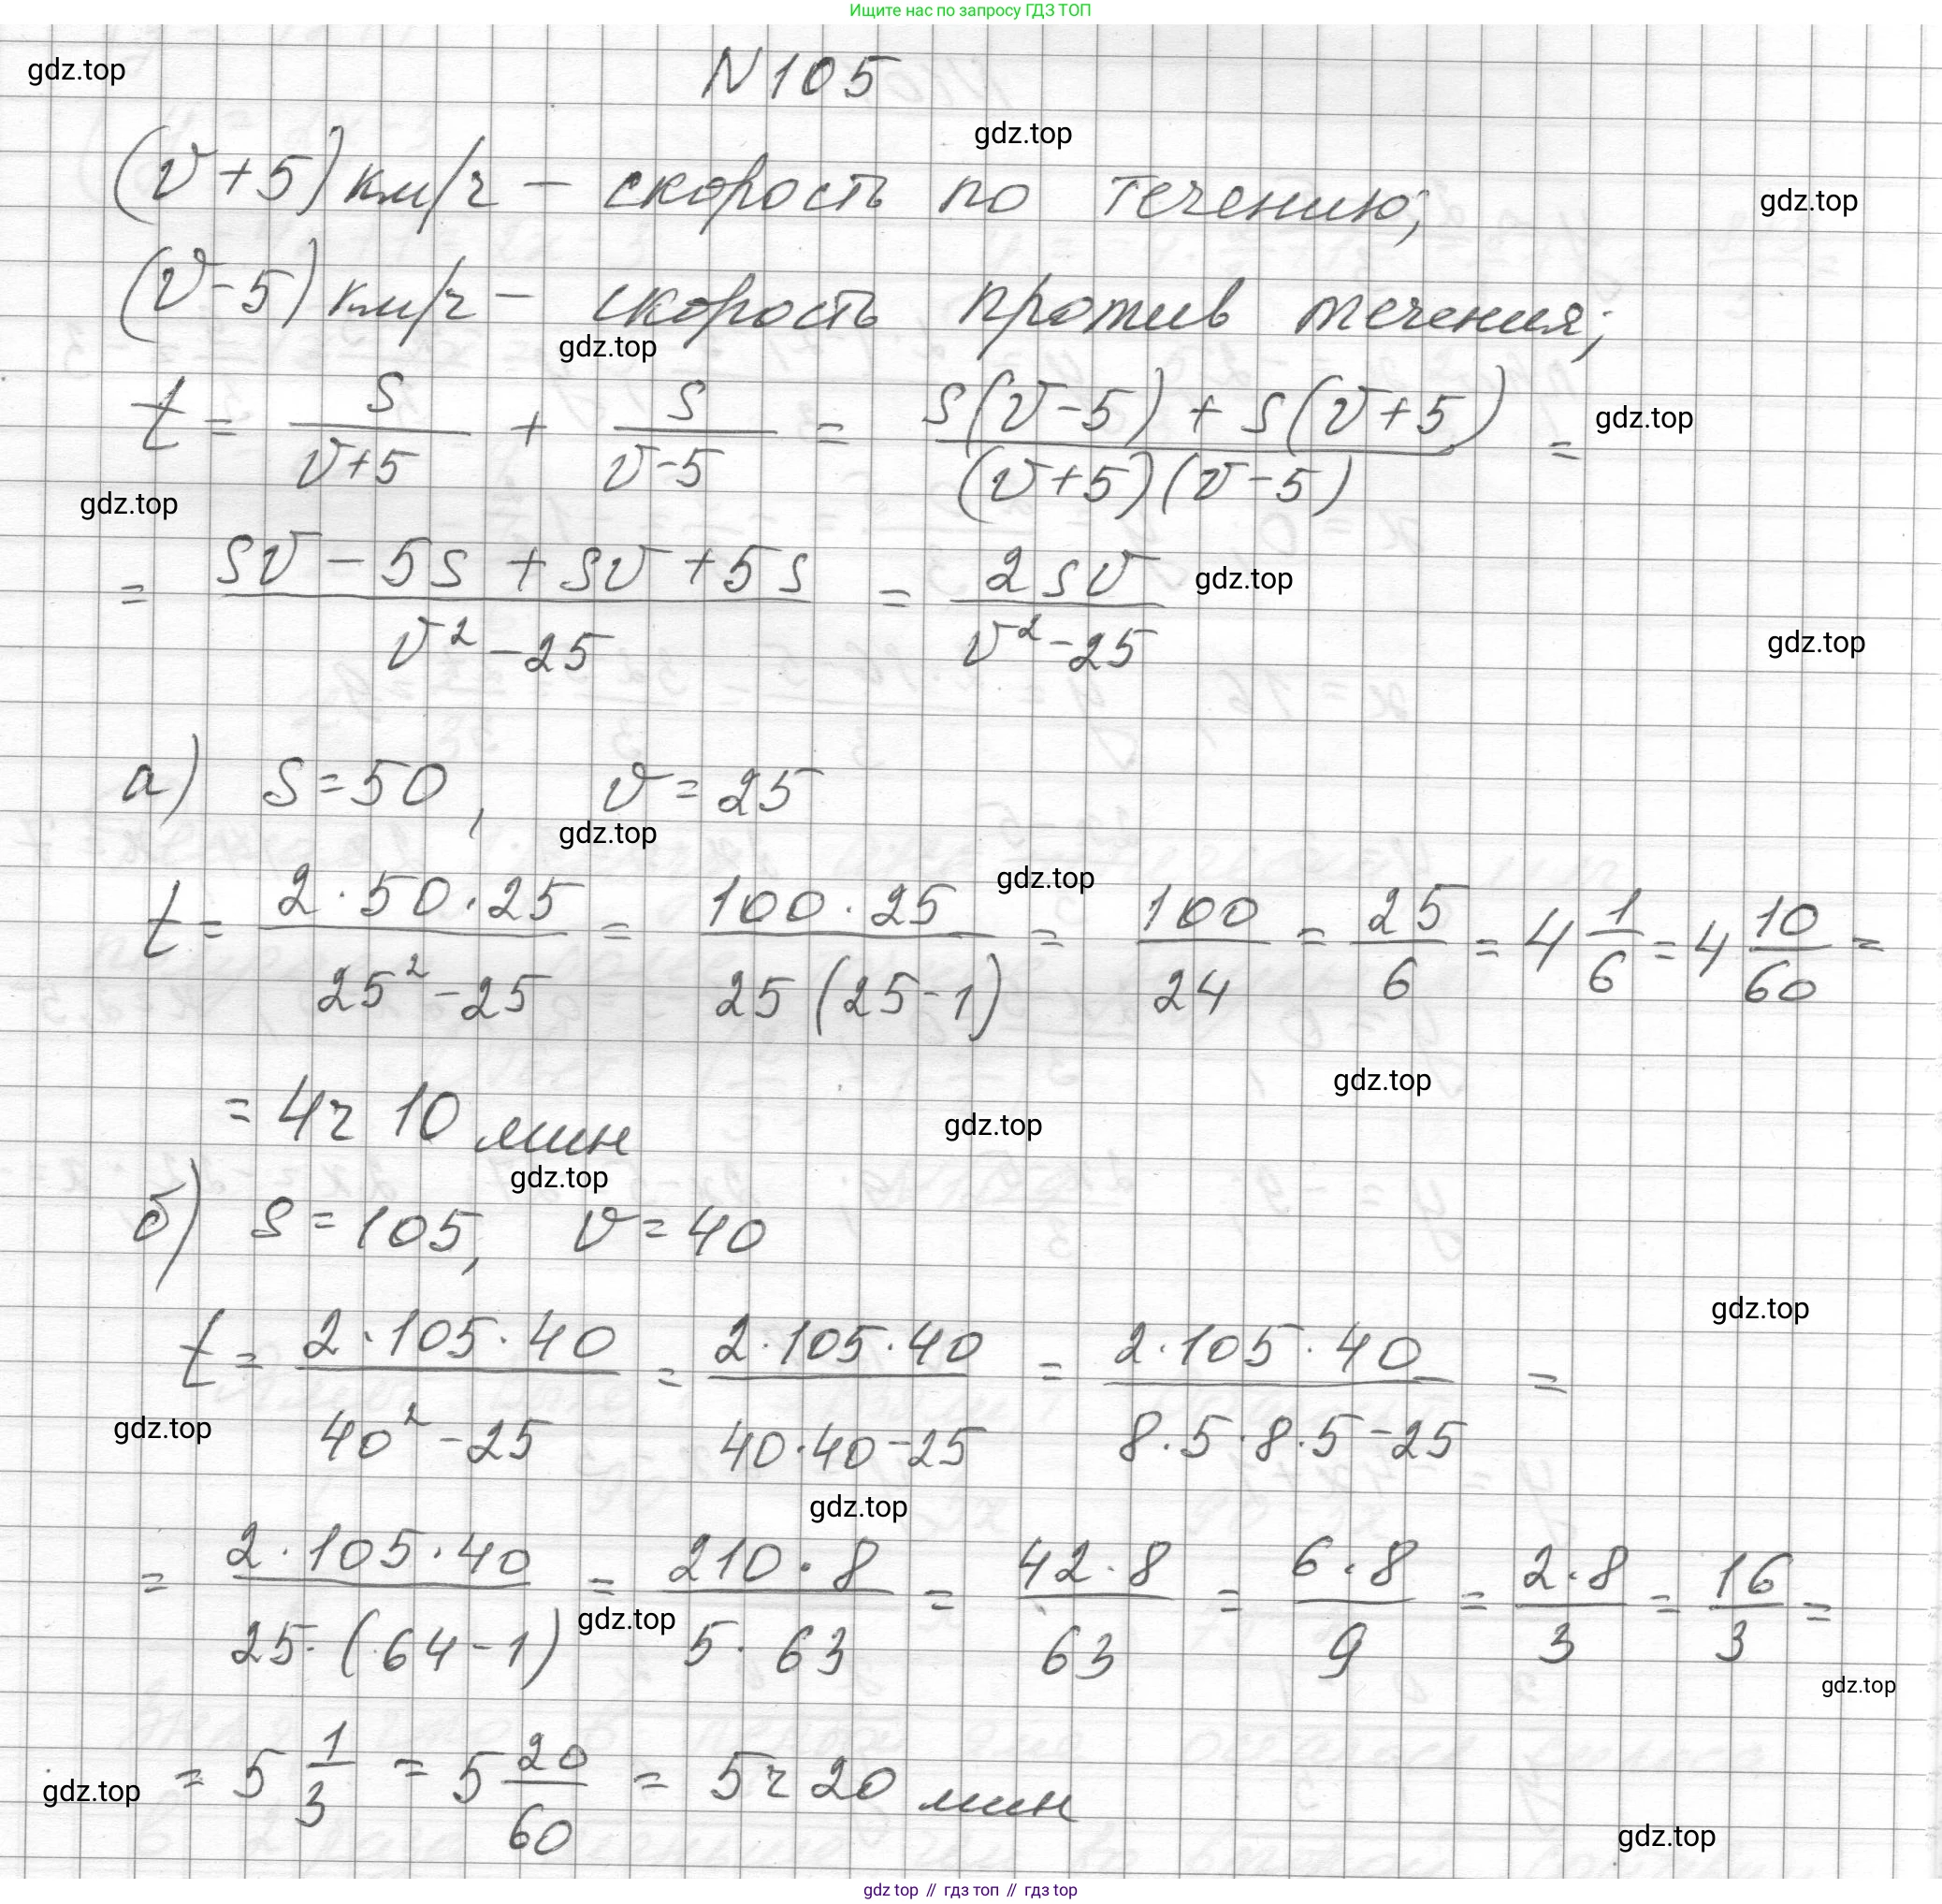 Ищите нас по запросу ГДЗ ТОП
gdz.top
N 105
gdz.top
(v+5) км/ч – скорость по течению;
gdz.top
(v-5) км/ч – скорость против течения;
gdz.top
t = s/(v+5) + s/(v-5) = (s(v-5) + s(v+5))/((v+5)(v-5)) =
gdz.top
gdz.top
= (sv - 5s + sv + 5s)/(v² - 25) = 2sv/(v² - 25)
gdz.top
gdz.top
а) s = 50, v = 25
gdz.top
gdz.top
t = (2·50·25)/(25² - 25) = (100·25)/(25(25-1)) = 100/24 = 25/6 = 4 1/6 = 4 10/60 =
gdz.top
= 4ч 10 мин
gdz.top
gdz.top
б) s = 105, v = 40
gdz.top
t = (2·105·40)/(40² - 25) = (2·105·40)/(40·40-25) = (2·105·40)/(8·5·8·5-25) =
gdz.top
gdz.top
= (2·105·40)/(25·(64-1)) = (210·8)/(5·63) = (42·8)/63 = (6·8)/9 = (2·8)/3 = 16/3 =
gdz.top
gdz.top
= 5 1/3 = 5 20/60 = 5ч 20 мин
gdz.top
gdz.top
gdz top // гдз топ // гдз top